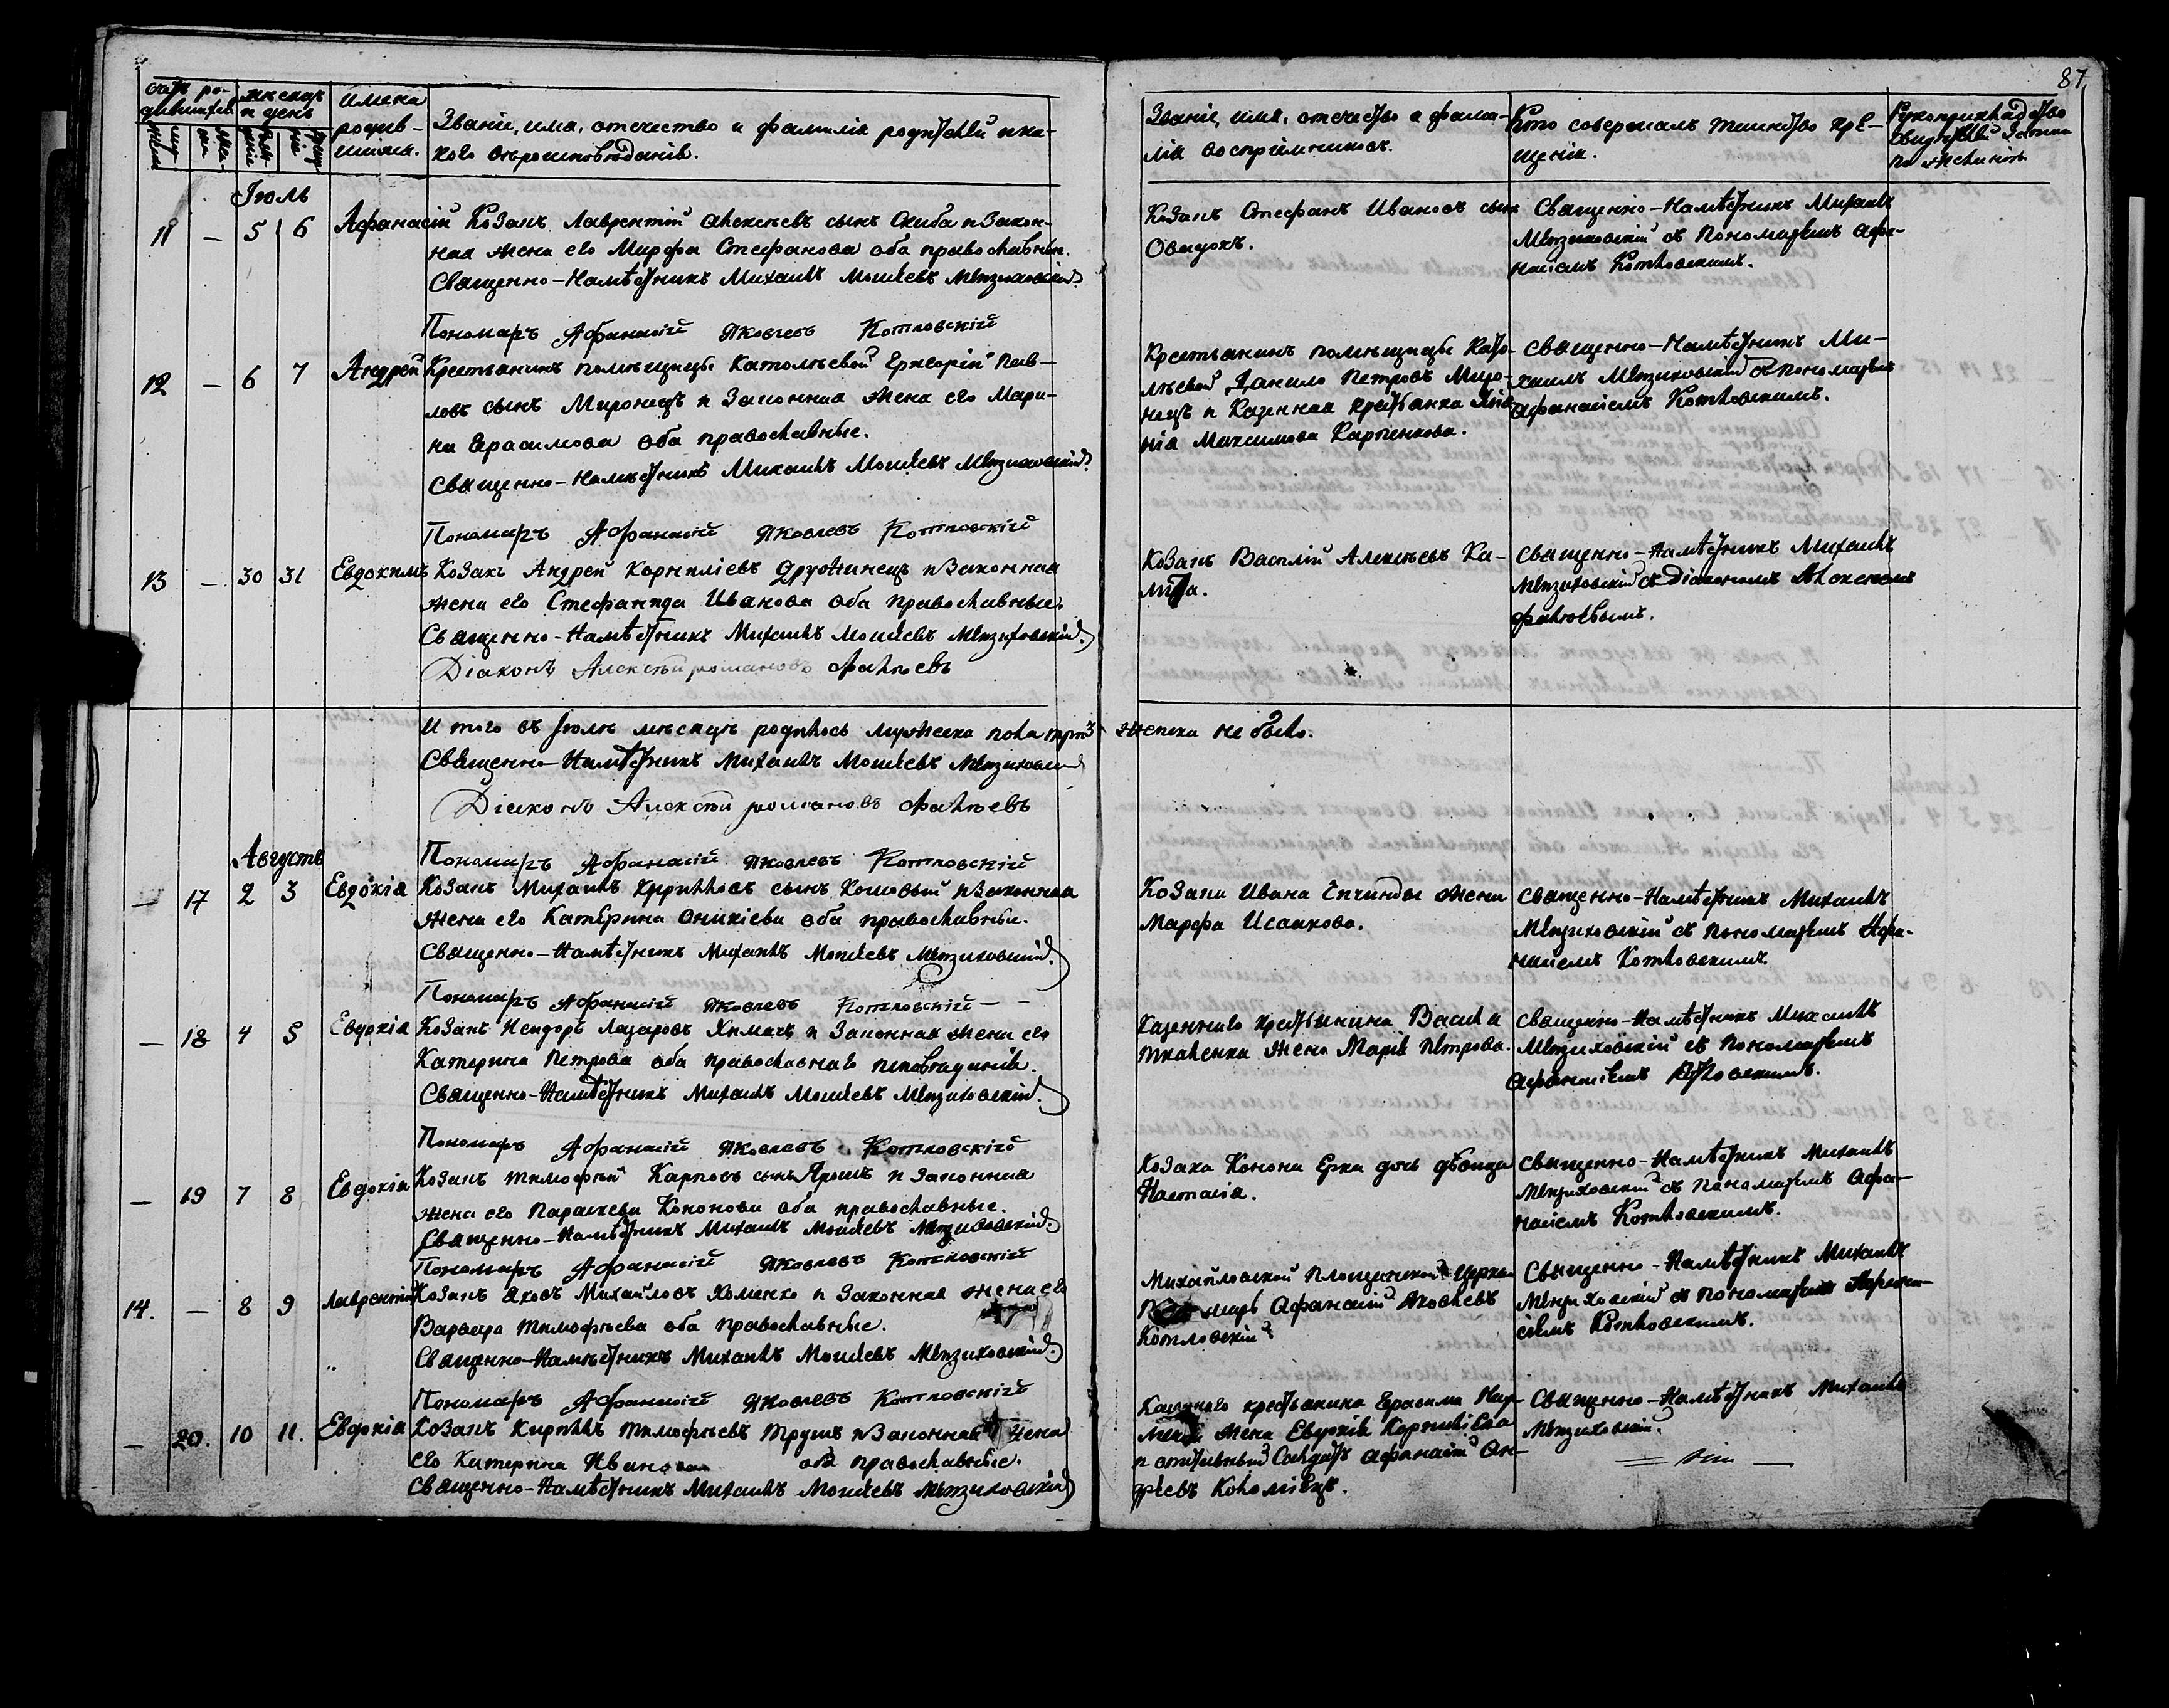 87
счетъ ро-
дившихся
мѣсяцъ
и день
имена
родив-
шихся.
Званіе, имя, отечество и фамилія родителей и ка-
кого вѣроисповѣданія.
Званіе, имя, отечество и фами-
лія воспріемниковъ.
Кто совершалъ таинство кре-
щенія.
Рукоприкладство
свидѣтелей записи
по желанію
Іюль
11 — 5 6 Афанасій
Козакъ Лаврентій Алексѣевъ сынъ Скиба и закон-
ная жена его Марфа Стефанова оба православные.
Священно-Намѣстникъ Михаилъ Моисеевъ Мензиховскій
Пономарь Афанасій Яковлевъ Котловскій
Козакъ Стефанъ Ивановъ сынъ
Овидохъ.
Священно-Намѣстникъ Михаилъ
Мензиховскій съ Пономаремъ Афа-
насіемъ Котловскимъ.
12 — 6 7 Андрей
Крестьянинъ помѣщицы Католѣевой Григорій Пав-
ловъ сынъ Миронецъ и законная жена его Мари-
на Герасимова оба православные.
Священно-Намѣстникъ Михаилъ Моисеевъ Мензиховскій
Пономарь Афанасій Яковлевъ Котловскій
Крестьянинъ помѣщицы Като-
лѣевой Данило Петровъ Миро-
нецъ и казенная крестьянка
Максимова Карпенкова.
Священно-Намѣстникъ Ми-
хаилъ Мензиховскій съ пономаремъ
Афанасіемъ Котловскимъ.
13 — 30 31 Евдокимъ
Козакъ Андрей Корниліевъ Дружинецъ и законная
жена его Стефанида Иванова оба православные
Священно-Намѣстникъ Михаилъ Моисеевъ Мензиховскій.
Діаконъ Алексѣй Романовъ Фалѣевъ
Козакъ Василій Алексѣевъ Ка-
Священно-Намѣстникъ Михаилъ
Мензиховскій съ Діакономъ Алексѣемъ
Фалѣевымъ.
И того въ Іюлѣ мѣсяцѣ родилось мужеска пола три 3 женска не было.
Священно-Намѣстникъ Михаилъ Моисеевъ Мензиховскій
Діаконъ Алексѣй Романовъ Фалѣевъ
Пономарь Афанасій Яковлевъ Котловскій
Августъ
— 17 2 3 Евдокія
Козакъ Михаилъ Кирилловъ сынъ Кошовый и законная
жена его Катерина Оникіева оба православные.
Священно-Намѣстникъ Михаилъ Моисеевъ Мензиховскій.
Пономарь Афанасій Яковлевъ Котловскій — —
Козака Ивана Епчинды жена
Марфа Исаакова.
Священно-Намѣстникъ Михаилъ
Мензиховскій съ Пономаремъ Афа-
насіемъ Котловскимъ.
— 18 4 5 Евдокія
Козакъ Исидоръ Лазаровъ Химачъ и законная жена его
Катерина Петрова оба православнаго исповѣданія.
Священно-Намѣстникъ Михаилъ Моисеевъ Мензиховскій.
Пономарь Афанасій Яковлевъ Котловскій
Казеннаго крестьянина Васила
Ткаченка жена Марія Петрова.
Священно-Намѣстникъ Михаилъ
Мензиховскій съ Пономаремъ
Афанасіемъ Котловскимъ.
— 19 7 8 Евдокія
Козакъ Тимофѣй Карповъ сынъ Ярошъ и законная
жена его Параскева Кононова оба православные.
Священно-Намѣстникъ Михаилъ Моисеевъ Мензиховскій
Пономарь Афанасій Яковлевъ Котловскій
Козака Конона Ерка дочь дѣвица
Настасія.
Священно-Намѣстникъ Михаилъ
Мензиховскій съ Пономаремъ Афа-
насіемъ Котловскимъ.
14. — 8 9 Лаврентій
Козакъ Яковъ Михайловъ Хоменко и законная жена его
Варвара Тимофѣева оба православные.
Священно-Намѣстникъ Михаилъ Моисеевъ Мензиховскій
Пономарь Афанасій Яковлевъ Котловскій
Михайловской церкви
Пономарь Афанасій Яковлевъ
Котловскій
Священно-Намѣстникъ Михаилъ
Мензиховскій съ пономаремъ Афана-
сіемъ Котловскимъ.
— 20. 10 11. Евдокія
Козакъ Кириллъ Тимофѣевъ Трушъ и законная жена
его Катерина Иванова оба православные.
Священно-Намѣстникъ Михаилъ Моисеевъ Мензиховскій
Казеннаго крестьянина Герасима
жена Евдокія Корниліева
и отставный солдатъ Афанасій Ан-
дреевъ Коломіецъ.
Священно-Намѣстникъ Михаилъ
Мензиховскій.